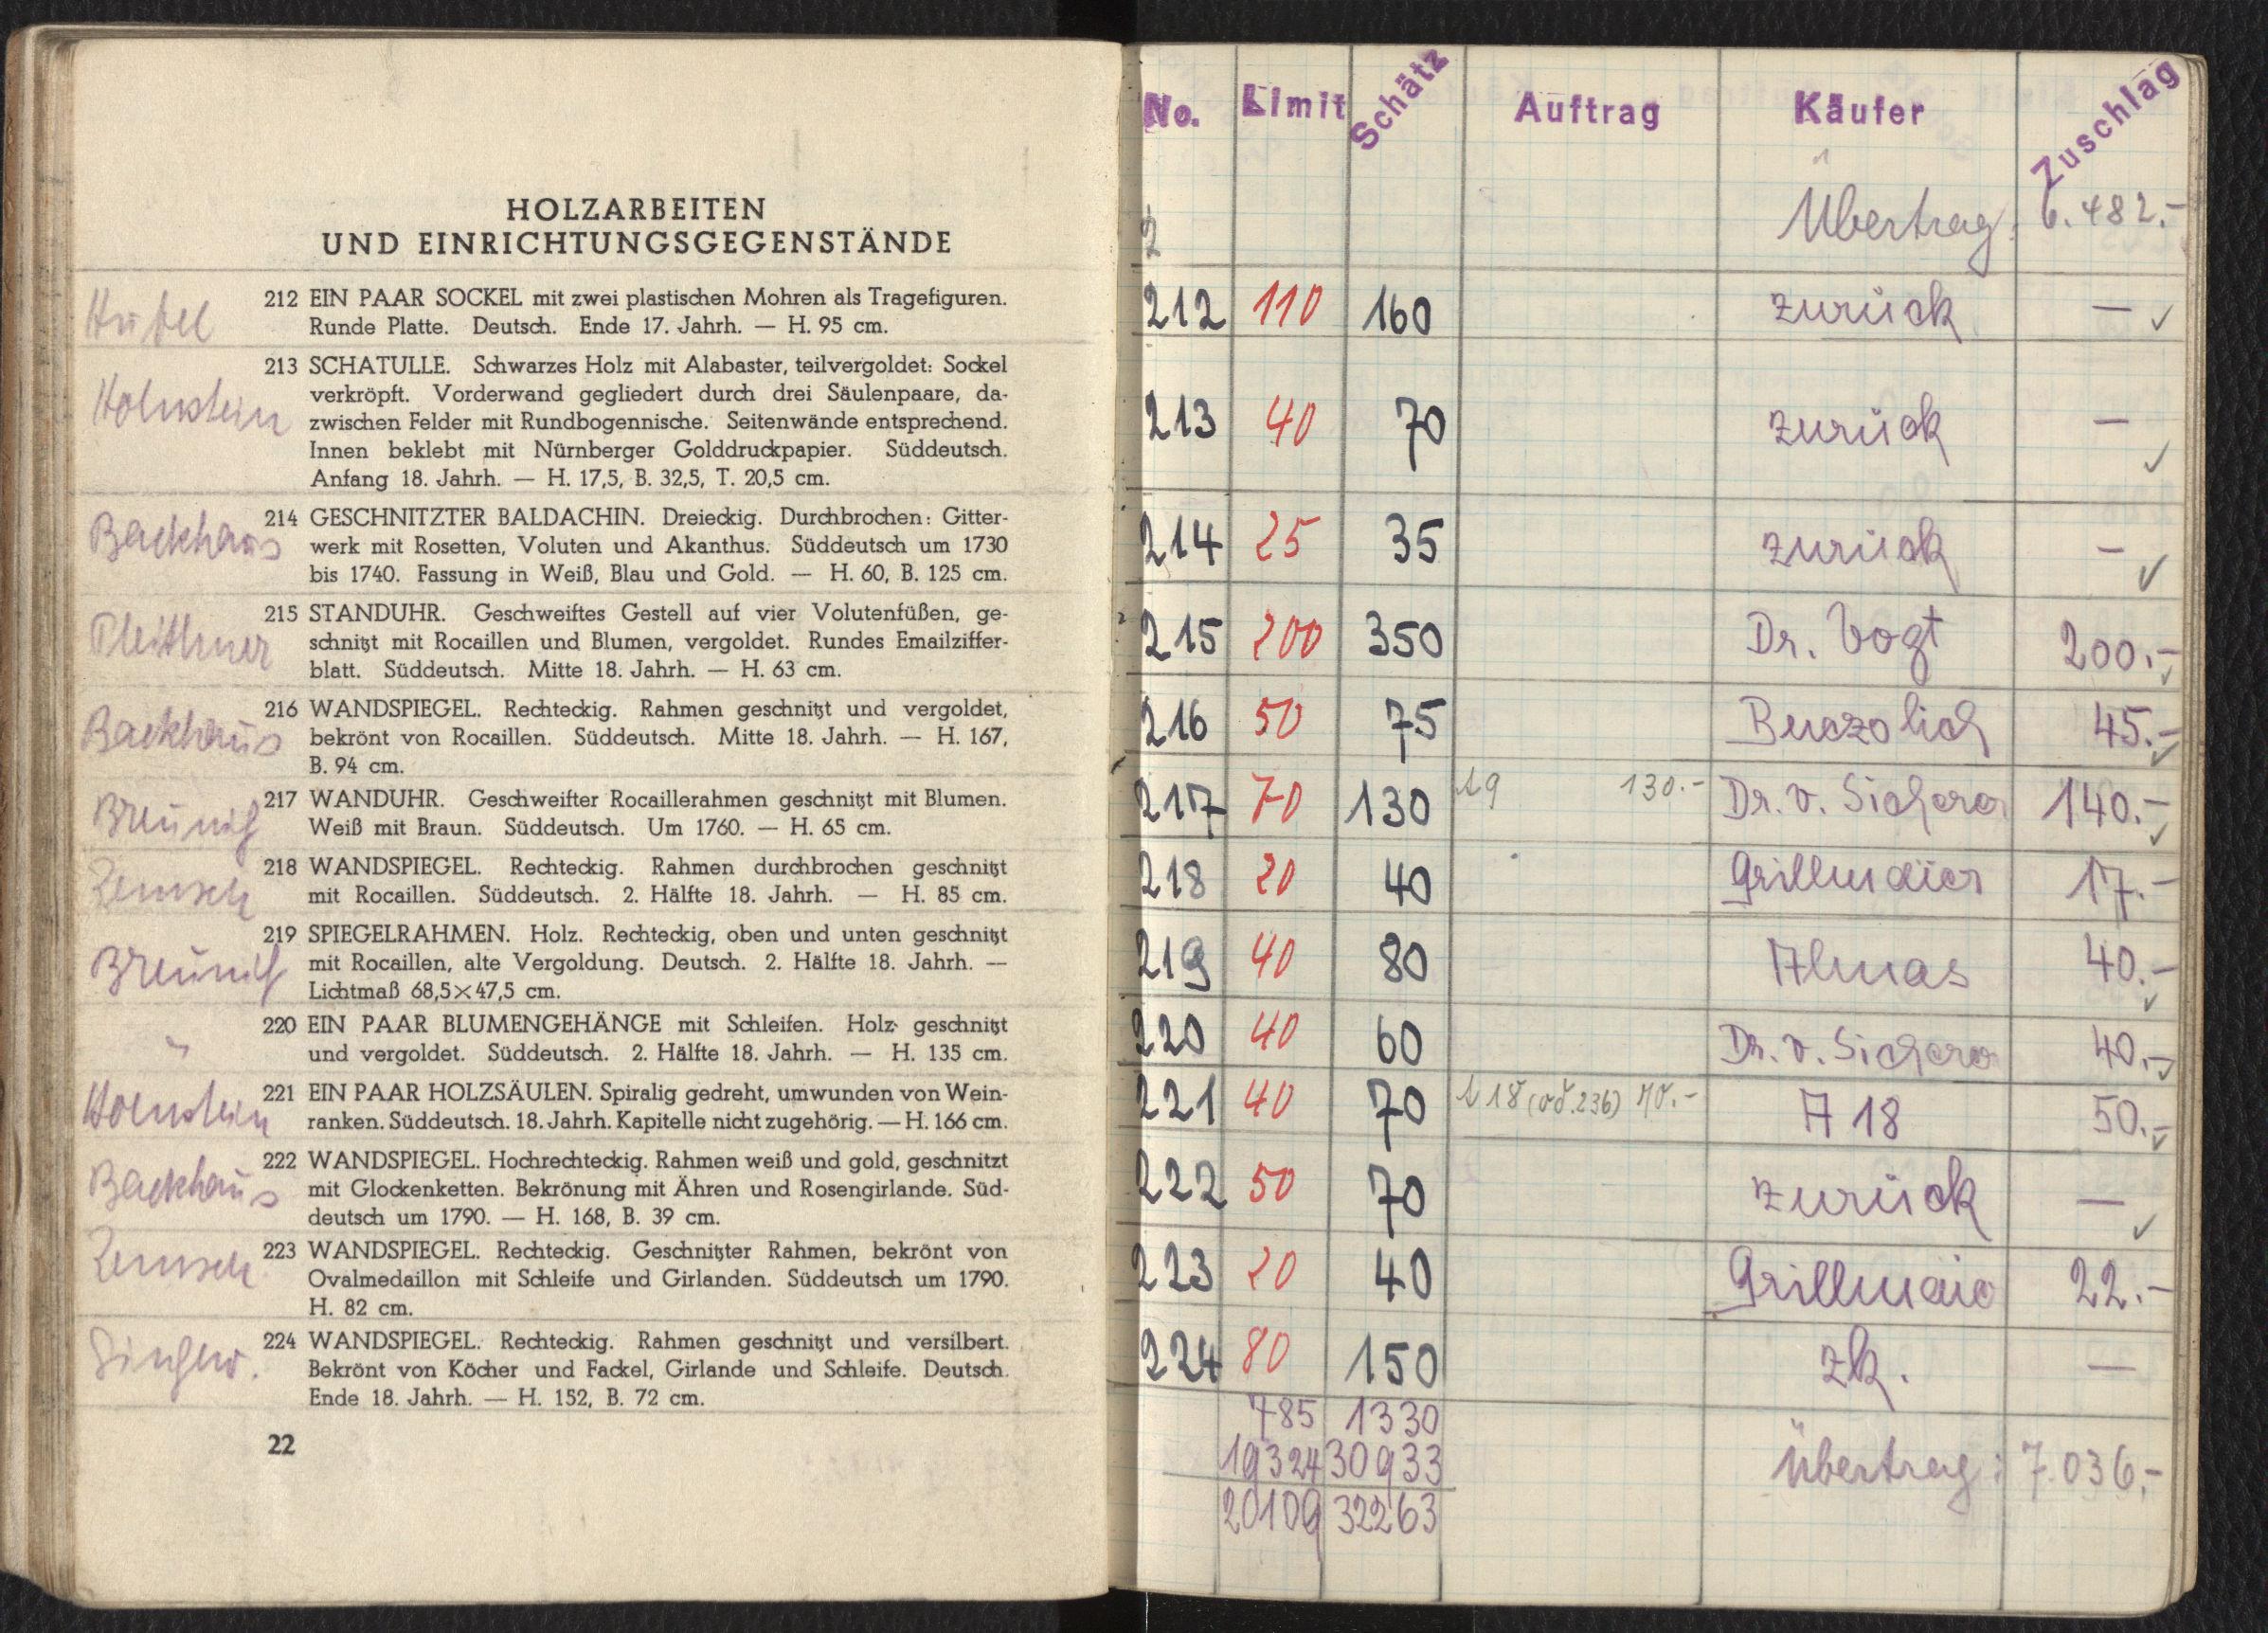 HOLZARBEITEN
UND EINRICHTUNGSGEGENSTÄNDE
212 EIN PAAR SOCKEL mit zwei plastischen Mohren als Tragefiguren.
Runde Platte. Deutsch. Ende 17. Jahrh. — H. 95 cm.
Holnstein
213 SCHATULLE. Schwarzes Holz mit Alabaster, teilvergoldet: Sockel
verkröpft. Vorderwand gegliedert durch drei Säulenpaare, da-
zwischen Felder mit Rundbogennische. Seitenwände entsprechend.
Innen beklebt mit Nürnberger Golddruckpapier. Süddeutsch.
Anfang 18. Jahrh. — H. 17,5, B. 32,5, T. 20,5 cm.
Backhaus
214 GESCHNITZTER BALDACHIN. Dreieckig. Durchbrochen: Gitter-
werk mit Rosetten, Voluten und Akanthus. Süddeutsch um 1730
bis 1740. Fassung in Weiß, Blau und Gold. — H. 60, B. 125 cm.
215 STANDUHR. Geschweiftes Gestell auf vier Volutenfüßen, ge-
schnitzt mit Rocaillen und Blumen, vergoldet. Rundes Emailziffer-
blatt. Süddeutsch. Mitte 18. Jahrh. — H. 63 cm.
Backhaus
216 WANDSPIEGEL. Rechteckig. Rahmen geschnitzt und vergoldet,
bekrönt von Rocaillen. Süddeutsch. Mitte 18. Jahrh. — H. 167,
B. 94 cm.
Breunig
217 WANDUHR. Geschweifter Rocaillerahmen geschnitzt mit Blumen.
Weiß mit Braun. Süddeutsch. Um 1760. — H. 65 cm.
218 WANDSPIEGEL. Rechteckig. Rahmen durchbrochen geschnitzt
mit Rocaillen. Süddeutsch. 2. Hälfte 18. Jahrh. — H. 85 cm.
Breunig
219 SPIEGELRAHMEN. Holz. Rechteckig, oben und unten geschnitzt
mit Rocaillen, alte Vergoldung. Deutsch. 2. Hälfte 18. Jahrh. —
Lichtmaß 68,5×47,5 cm.
220 EIN PAAR BLUMENGEHÄNGE mit Schleifen. Holz geschnitzt
und vergoldet. Süddeutsch. 2. Hälfte 18. Jahrh. — H. 135 cm.
Holnstein
221 EIN PAAR HOLZSÄULEN. Spiralig gedreht, umwunden von Wein-
ranken. Süddeutsch. 18. Jahrh. Kapitelle nicht zugehörig. — H. 166 cm.
Backhaus
222 WANDSPIEGEL. Hochrechteckig. Rahmen weiß und gold, geschnitzt
mit Glockenketten. Bekrönung mit Ähren und Rosengirlande. Süd-
deutsch um 1790. — H. 168, B. 39 cm.
223 WANDSPIEGEL. Rechteckig. Geschnitzter Rahmen, bekrönt von
Ovalmedaillon mit Schleife und Girlanden. Süddeutsch um 1790.
H. 82 cm.
224 WANDSPIEGEL. Rechteckig. Rahmen geschnitzt und versilbert.
Bekrönt von Köcher und Fackel, Girlande und Schleife. Deutsch.
Ende 18. Jahrh. — H. 152, B. 72 cm.
22
No. Limit Schätz Auftrag Käufer Zuschlag
Übertrag: 6.482.-
212 110 160 zurück — ✓
213 40 70 zurück — ✓
214 25 35 zurück — ✓
215 200 350 Dr. Vogt 200.- ✓
216 50 75 Buczolich 45.- ✓
217 70 130 130.- Dr. v. Sicherer 140.- ✓
218 20 40 Grillmaier 17.-
219 40 80 Almas 40.- ✓
220 40 60 Dr. v. Sicherer 40.- ✓
221 40 70 A 18 50.- ✓
222 50 70 zurück — ✓
223 20 40 Grillmaier 22.-
224 80 150 zk. —
785 1330
19324 30933 Übertrag: 7.036.-
20109 32263